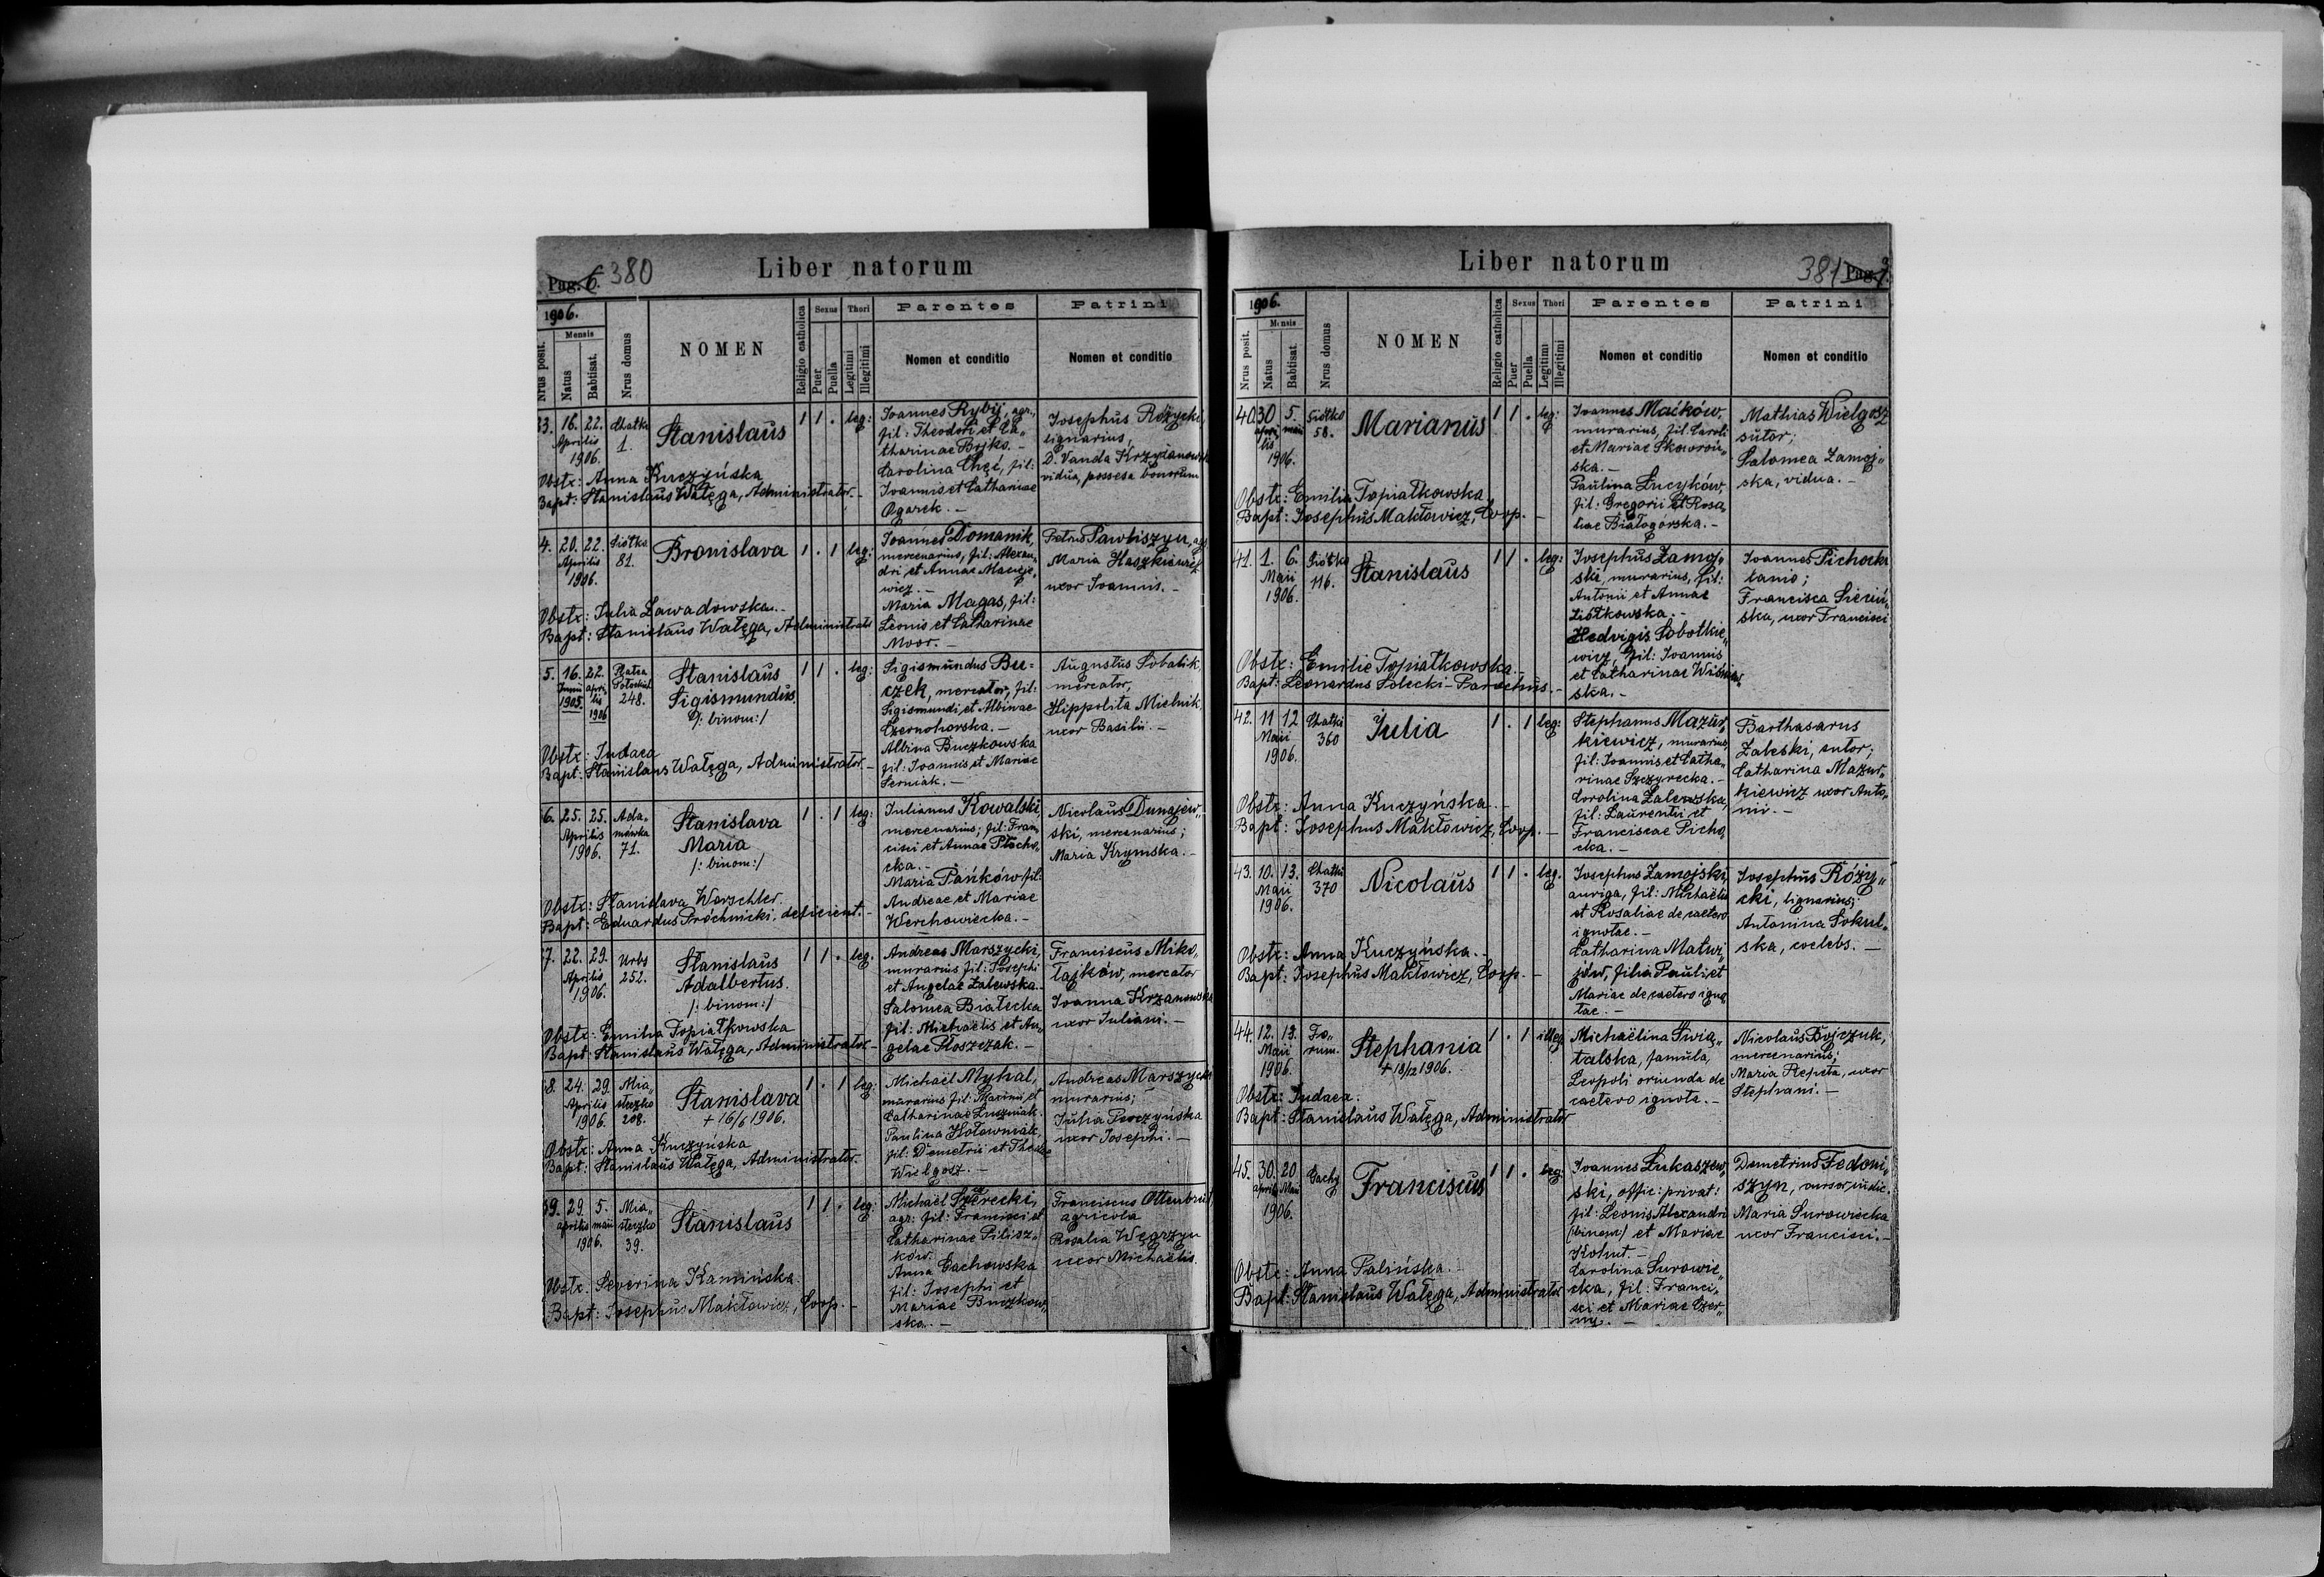 Pag. 6. 380
Liber natorum
1906.
Nrus posit.
Mensis
Natus
Babtisat.
Nrus domus
NOMEN
Religio catholica
Sexus
Puer
Puella
Thori
Legitimi
Illegitimi
Parentes
Nomen et conditio
Patrini
Nomen et conditio
33. 16. 22. Chatki
Aprilis 1.
1906.
Stanislaus
1 1 . leg:
Joannes Rybij, agr.,
fil: Theodori et Ca„
tharinae Bojko. –
Carolina Chęć, fil:
Joannis et Catharinae
Ogarek. –
Josephus Różycki,
lignarius,
D. Vanda Krzyżanowska
vidua, possesa bonorum
Obstr: Anna Kuczyńska
Bapt: Stanislaus Wałęga, Administrator. –
4. 20. 22. Siółka
Aprilis 81.
1906.
Bronislava
1 . 1 leg:
Joannes Domanik,
mercenarius, fil: Alexan„
dri et Annae Macieje„
wicz. –
Maria Magas, fil:
Leonis et Catharinae
Moor. –
Petrus Pawliszyn, agr.
Maria Haszkiewicz
uxor Joannis. –
Obstr: Julia Zawadowska. –
Bapt: Stanislaus Wałęga, Administrator
5. 16. 22. Platea
Junii apri„ Potockich
1905. lis 248.
1906
Stanislaus
Sigismundus
/: binom:/
1 1 . leg:
Sigismundus Bu=
czek, mercator, fil:
Sigismundi et Albinae
Czernohorska. –
Albina Buczkowska
fil: Joannis et Mariae
Serniak. –
Augustus Sobalik,
mercator,
Hippolita Mielnik,
uxor Basilii. –
Obstr: Judaea
Bapt: Stanislaus Wałęga, Administrator. –
6. 25. 25. Ada„
Aprilis mówka
1906. 71.
Stanislava
Maria
/: binom:/
1 . 1 leg:
Julianus Kowalski,
mercenarius; fil: Fran„
cisci et Annae Płocho„
cka. –
Maria Pańków fil:
Andreae et Mariae
Werchowiecka. –
Nicolaus Dunajew„
ski, mercenarius;
Maria Krymska. –
Obstr: Stanislava Worschler.
Bapt: Eduardus Próchnicki, deficient. –
7. 22. 29. Urbs
Aprilis 252.
1906.
Stanislaus
Adalbertus.
/: binom:/
1 1 . leg.
Andreas Marszycki,
murarius fil: Josephi
et Angelae Zalewska.
Salomea Białecka
fil: Michaëlis et An„
gelae Płoszczak. –
Franciscus Miko„
łajków, mercator
Joanna Krzanowska
uxor Juliani. –
Obstr: Emilia Topiałkowska
Bapt: Stanislaus Wałęga, Administrator. –
8. 24. 29. Mia„
Aprilis steczko
1906. 208.
Stanislava
+ 16/6 1906.
1 . 1 leg:
Michaël Myhal,
murarius fil: Maximi et
Catharinae Łuszniak.
Paulina Hołowniak,
fil: Demetrii et Theclae
Wielgosz. –
Andreas Marszycki
murarius;
Julia Perczyńska
uxor Josephi. –
Obstr: Anna Kuczyńska
Bapt: Stanislaus Wałęga, Administrator.
39. 29. 5. Mia„
aprilis maii steczko
1906. 39.
Stanislaus
1 1 . leg:
agr: fil: Francisci et
Catharinae Pilisz„
ków.
Anna Gachowska
fil: Josephi et
Mariae Buczkow„
ska. –
Franciscus Ottenbreit,
agricola
Rosalia Węgrzyn
uxor Michaëlis.
Obstr: Severina Kamińska.
Bapt: Josephus Makłowicz, Coop. –
Liber natorum
381 Pag. 7.
1906.
Nrus posit.
Mensis
Natus
Babtisat.
Nrus domus
NOMEN
Religio catholica
Sexus
Puer
Puella
Thori
Legitimi
Illegitimi
Parentes
Nomen et conditio
Patrini
Nomen et conditio
40. 30 5. Siółka
apri„ maii 58.
lis
1906.
Marianus
1 1 . leg:
Joannes Maćków,
murarius, fil. Caroli
et Mariae Skowroń„
ska. –
Paulina Łucyków,
fil: Gregorii et Rosa„
liae Białogórska. –
Mathias Wielgosz
sutor;
Salomea Zamoj„
ska, vidua. –
Obstr: Emilia Topiałkowska
Bapt: Josephus Makłowicz, Coop. –
41. 1. 6. Siółka
Maii 116.
1906.
Stanislaus
1 1 . leg:
Josephus Zamoj„
ski, murarius, fil:
Antonii et Annae
Ziółkowska. –
Hedvigis Sobotkie„
wicz, fil: Joannis
et Catharinae Wiśniew„
ska. –
Joannes Pichocki
lanio;
Francisca Sieciń„
ska, uxor Francisci
Obstr: Emilie Topiałkowska. –
Bapt: Leonardus Solecki – Parochus. –
42. 11 12 Chatki
Maii 360
1906.
Julia
1 . 1 leg:
Stephanus Mazur„
kiewicz, murarius,
fil: Joannis et Catha„
rinae Szczyrecka. –
Carolina Zalewska,
fil: Laurentii et
Franciscae Picho„
cka. –
Barthasarus
Zaleski, sutor;
Catharina Mazur„
kiewicz uxor Anto„
nii. –
Obstr: Anna Kuczyńska. –
Bapt: Josephus Makłowicz, Coop. –
43. 10. 13. Chatki
Maii 370
1906.
Nicolaus
1 1 . leg.
Josephus Zamojski,
auriga, fil: Michaëlis
et Rosaliae de caetero
ignotae. –
Catharina Matwi„
jów, filia Pauli et
Mariae de caetero igno„
tae. –
Josephus Różyc„
cki, lignarius;
Antonina Sokul„
ska, coelebs. –
Obstr: Anna Kuczyńska. –
Bapt: Josephus Makłowicz, Coop. –
44. 12. 13. Fo„
Maii rum.
1906.
Stephania
+ 18/12 1906.
1 . 1 illeg.
Michaëlina Świą„
talska, famula,
Leopoli oriunda de
caetero ignota. –
Nicolaus Bojczuk,
mercenarius;
Maria Repeta, uxor
Stephani. –
Obstr: Judaea.
Bapt: Stanislaus Wałęga, Administrator
45. 30. 20 Gachy
aprilis Maii
1906.
Franciscus
1 1 . leg:
Joannes Łukaszew„
ski, offic: privat:
fil: Leonis Alexandri
(binom) et Mariae
Kohut. –
Carolina Surowie„
cka, fil: Franci„
sci et Mariae Czer„
ny. –
Demetrius Fedoni„
szyn, cursor judic.
Maria Surowiecka
uxor Francisci. –
Obste: Anna Palińska. –
Bapt: Stanislaus Wałęga, Administrator